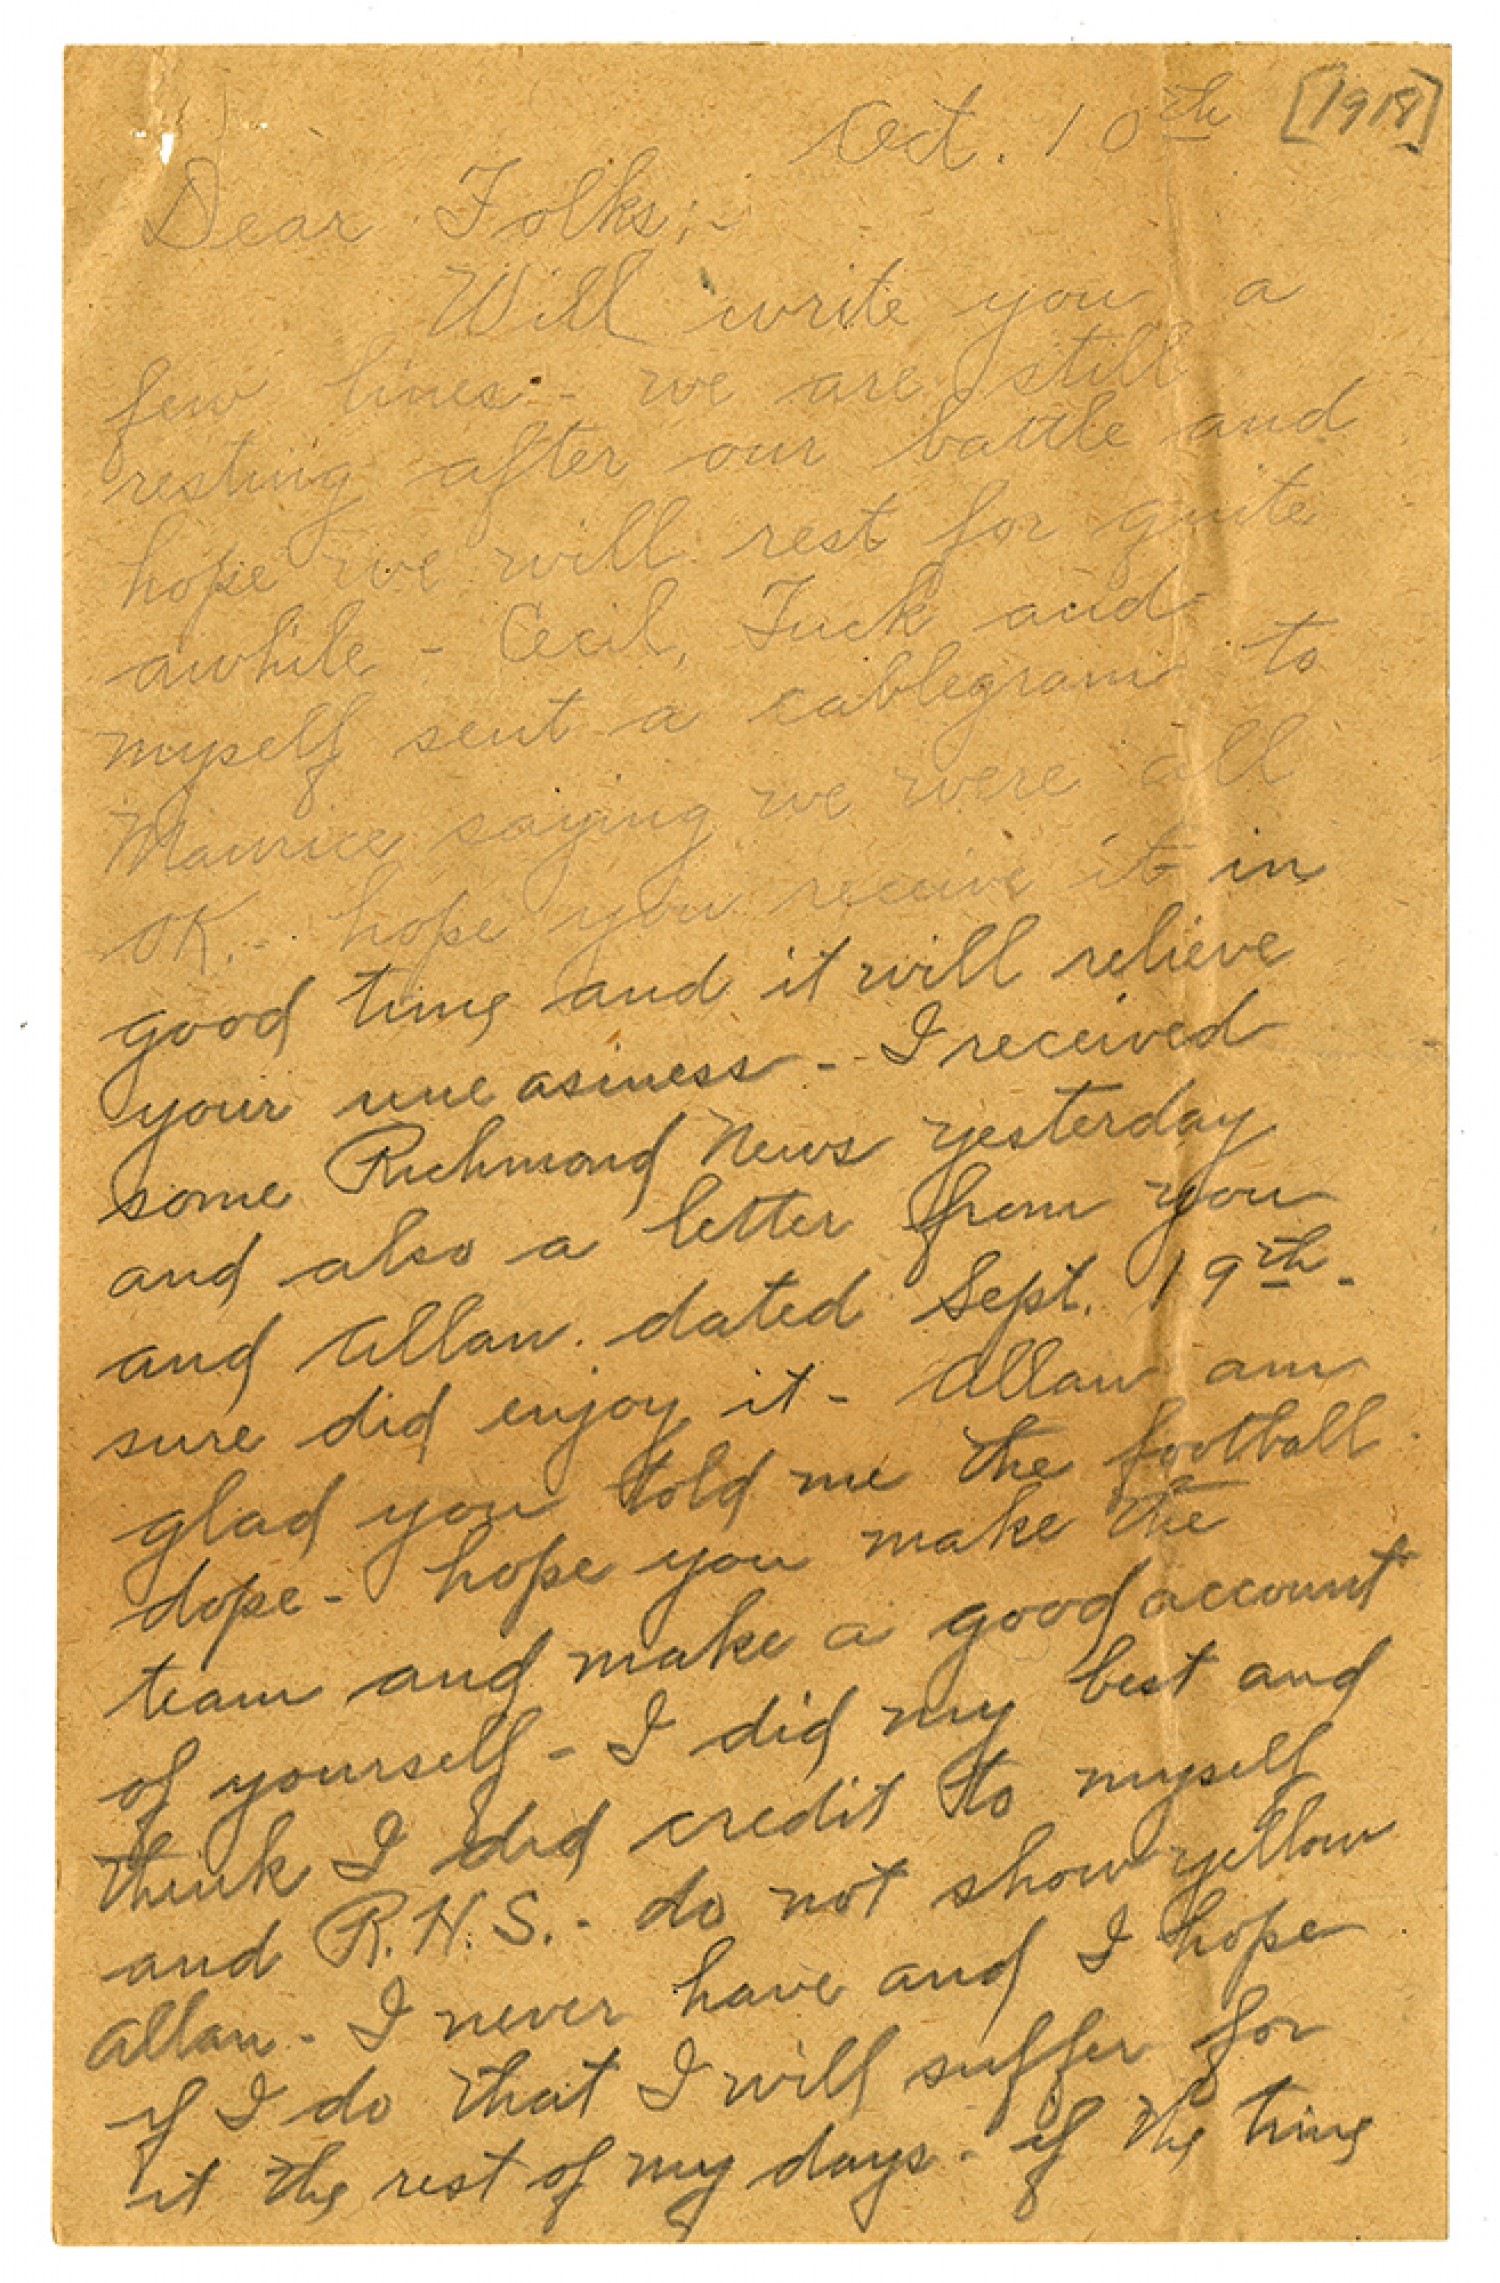 Oct. 10th [1918]
Dear Folks;-
Will write you a
few lines - we are still
resting after our battle and
hope we will rest for quite
awhile - Cecil, Tuck and
myself sent a cablegram to
Maurice saying we were all
OK. - hope you receive it in
good time and it will relieve
your uneasiness - I received
some Richmond News yesterday
and also a letter from you
and Allan. dated Sept. 19th -
sure did enjoy it - Allan am
glad you told me the football
dope - hope you make the
team and make a good account
of yourself - I did my best and
think I did credit to myself
and R.H.S. - do not show yellow
Allan - I never have and I hope
if I do that I will suffer for
it the rest of my days - if the time